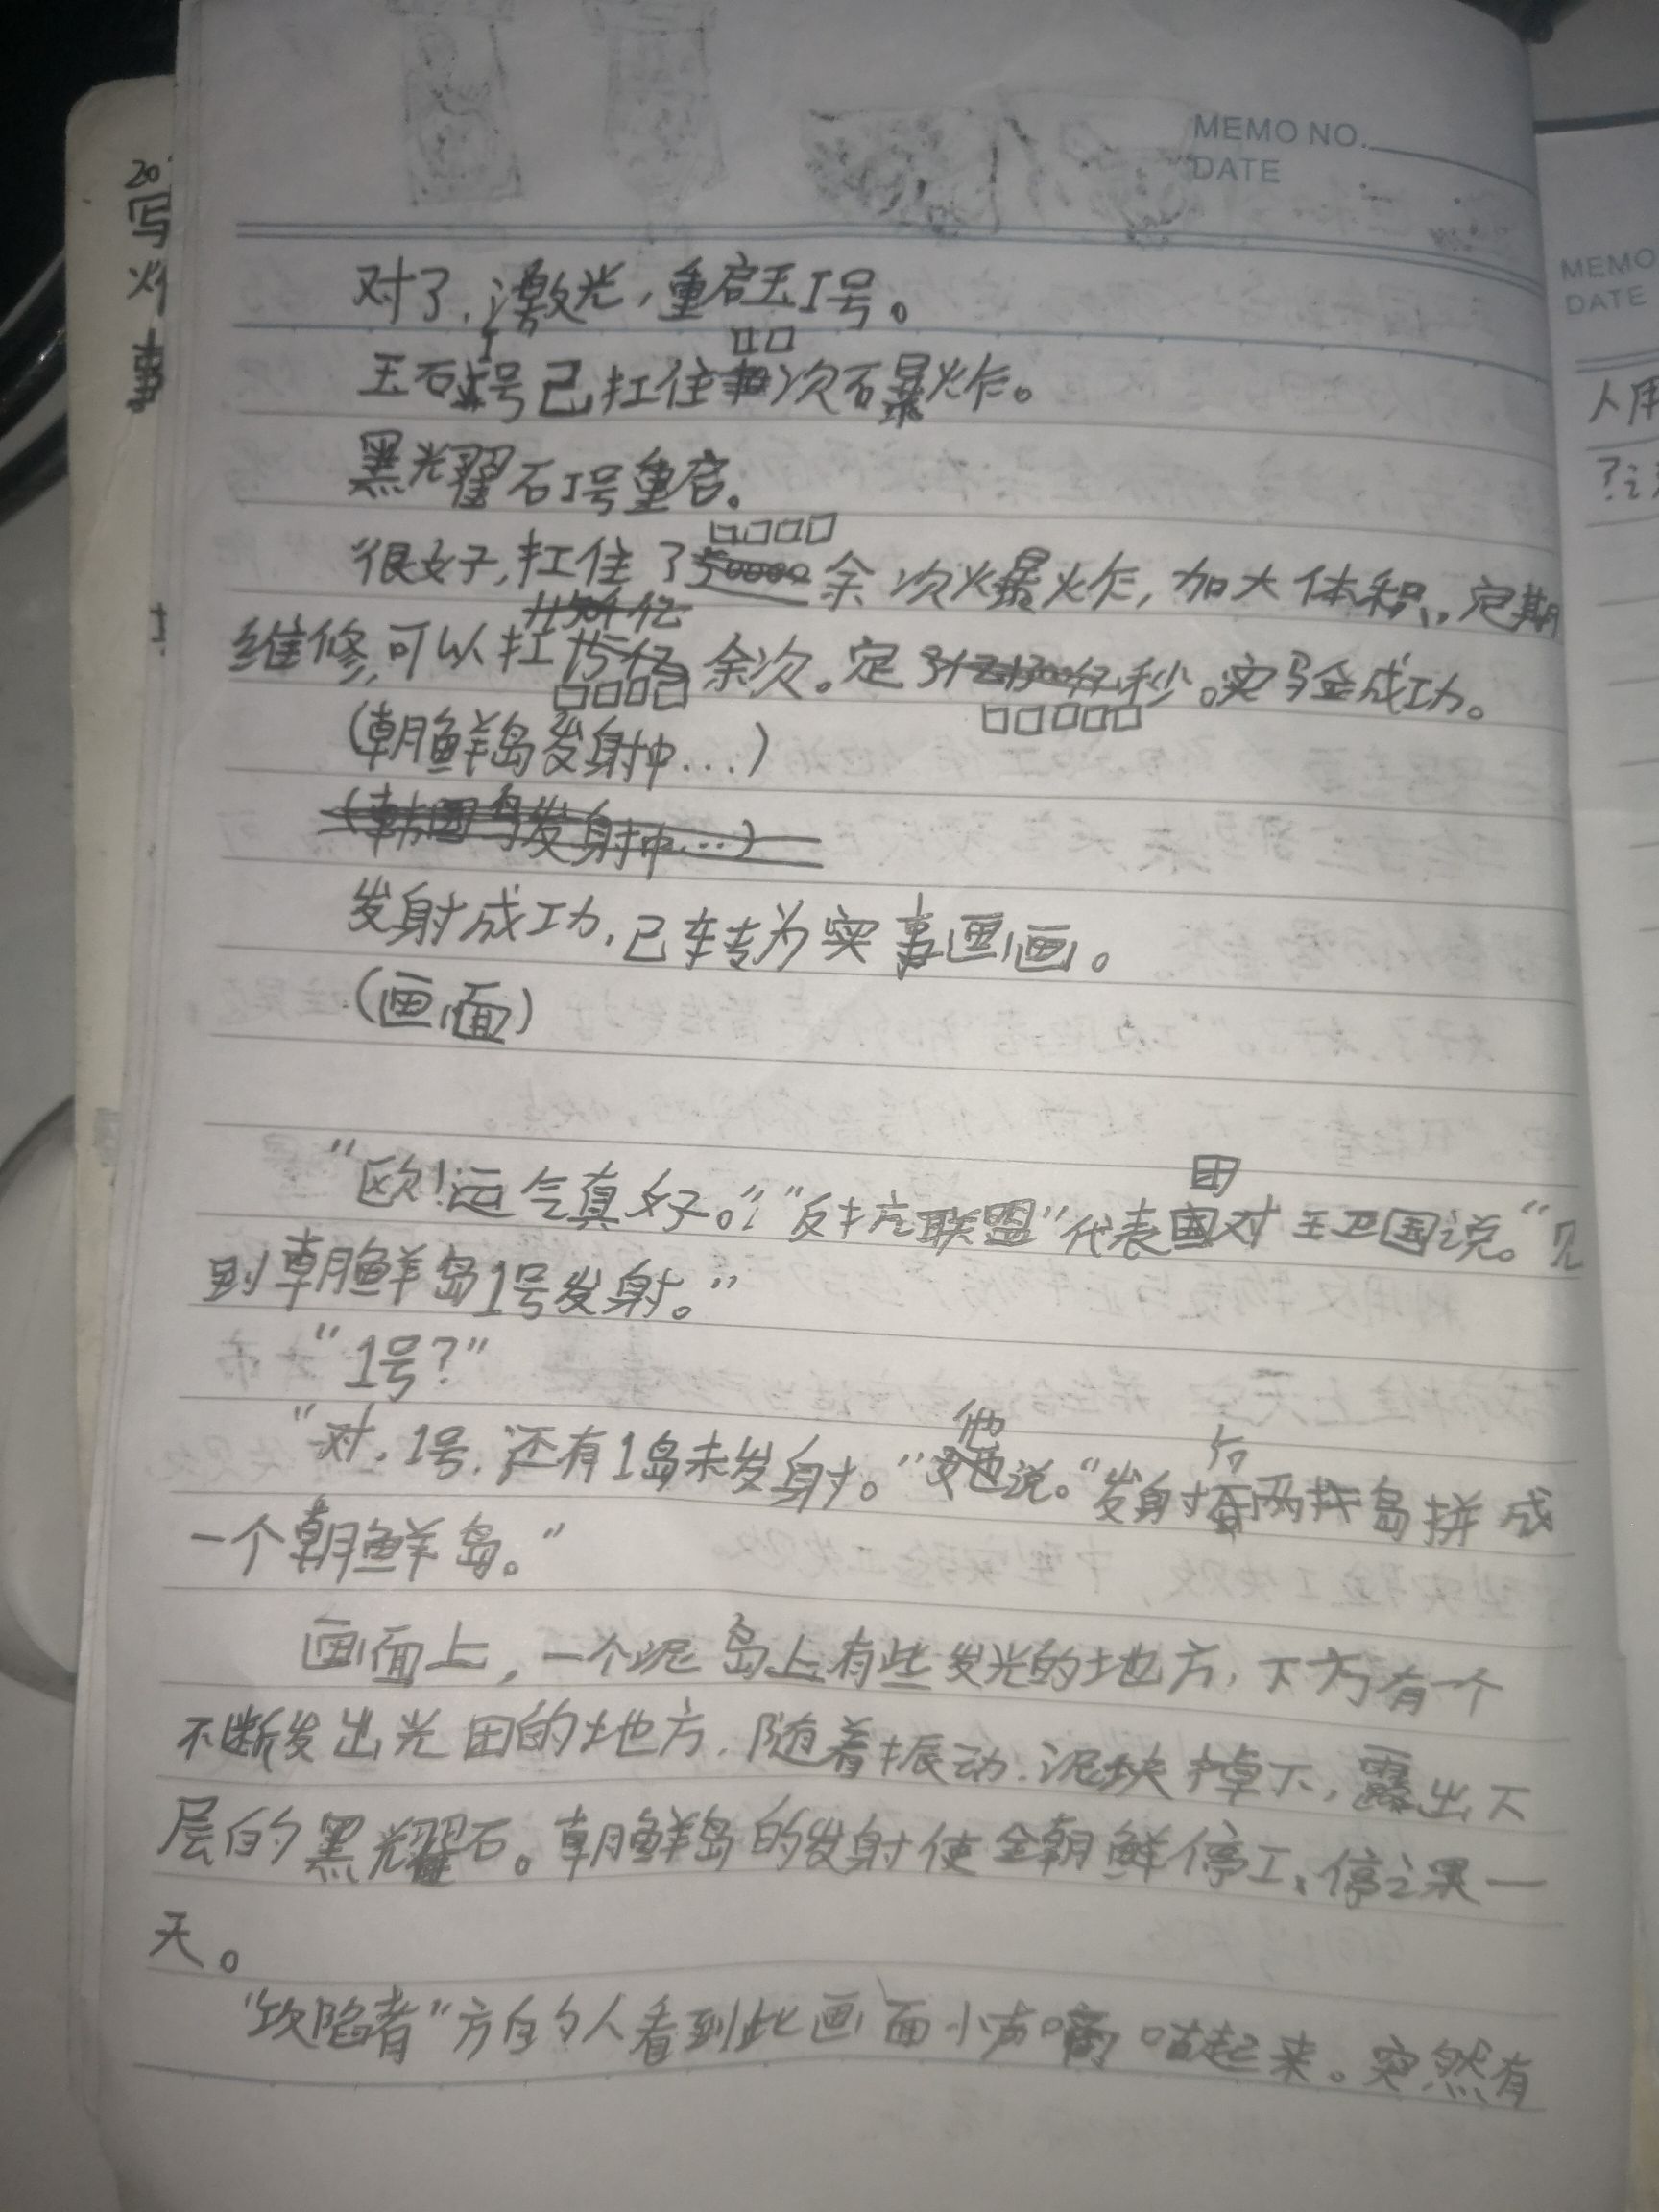 MEMO NO.
DATE
对了，激光，重启玉I号。
玉石I号已扛住□□次石暴炸。
黑光耀石I号重启。
很好，扛住了□□□□余次火暴炸，加大体积，定期
维修，可以扛□□□□余次。定□□□□□秒。实验成功。
(朝鲜岛发射中...)
(韩国岛发射中...)
发射成功，已转为实事画画。
(画面)
“欧！运气真好。”“反抗联盟”代表团对王卫国说。“
则朝鲜岛1号发射。”
“1号？”
“对，1号，还有1岛未发射。”他说。“发射后两块岛拼成
一个朝鲜岛。”
画面上，一个泥岛上有些发光的地方，下方有一个
不断发出光团的地方，随着振动，泥块掉下，露出下
层的黑耀石。朝鲜岛的发射使全朝鲜停工、停课一
天。
“坎陷者”方的人看到此画面小声嘀咕起来。突然有
20
写
MEMO
DATE
人用